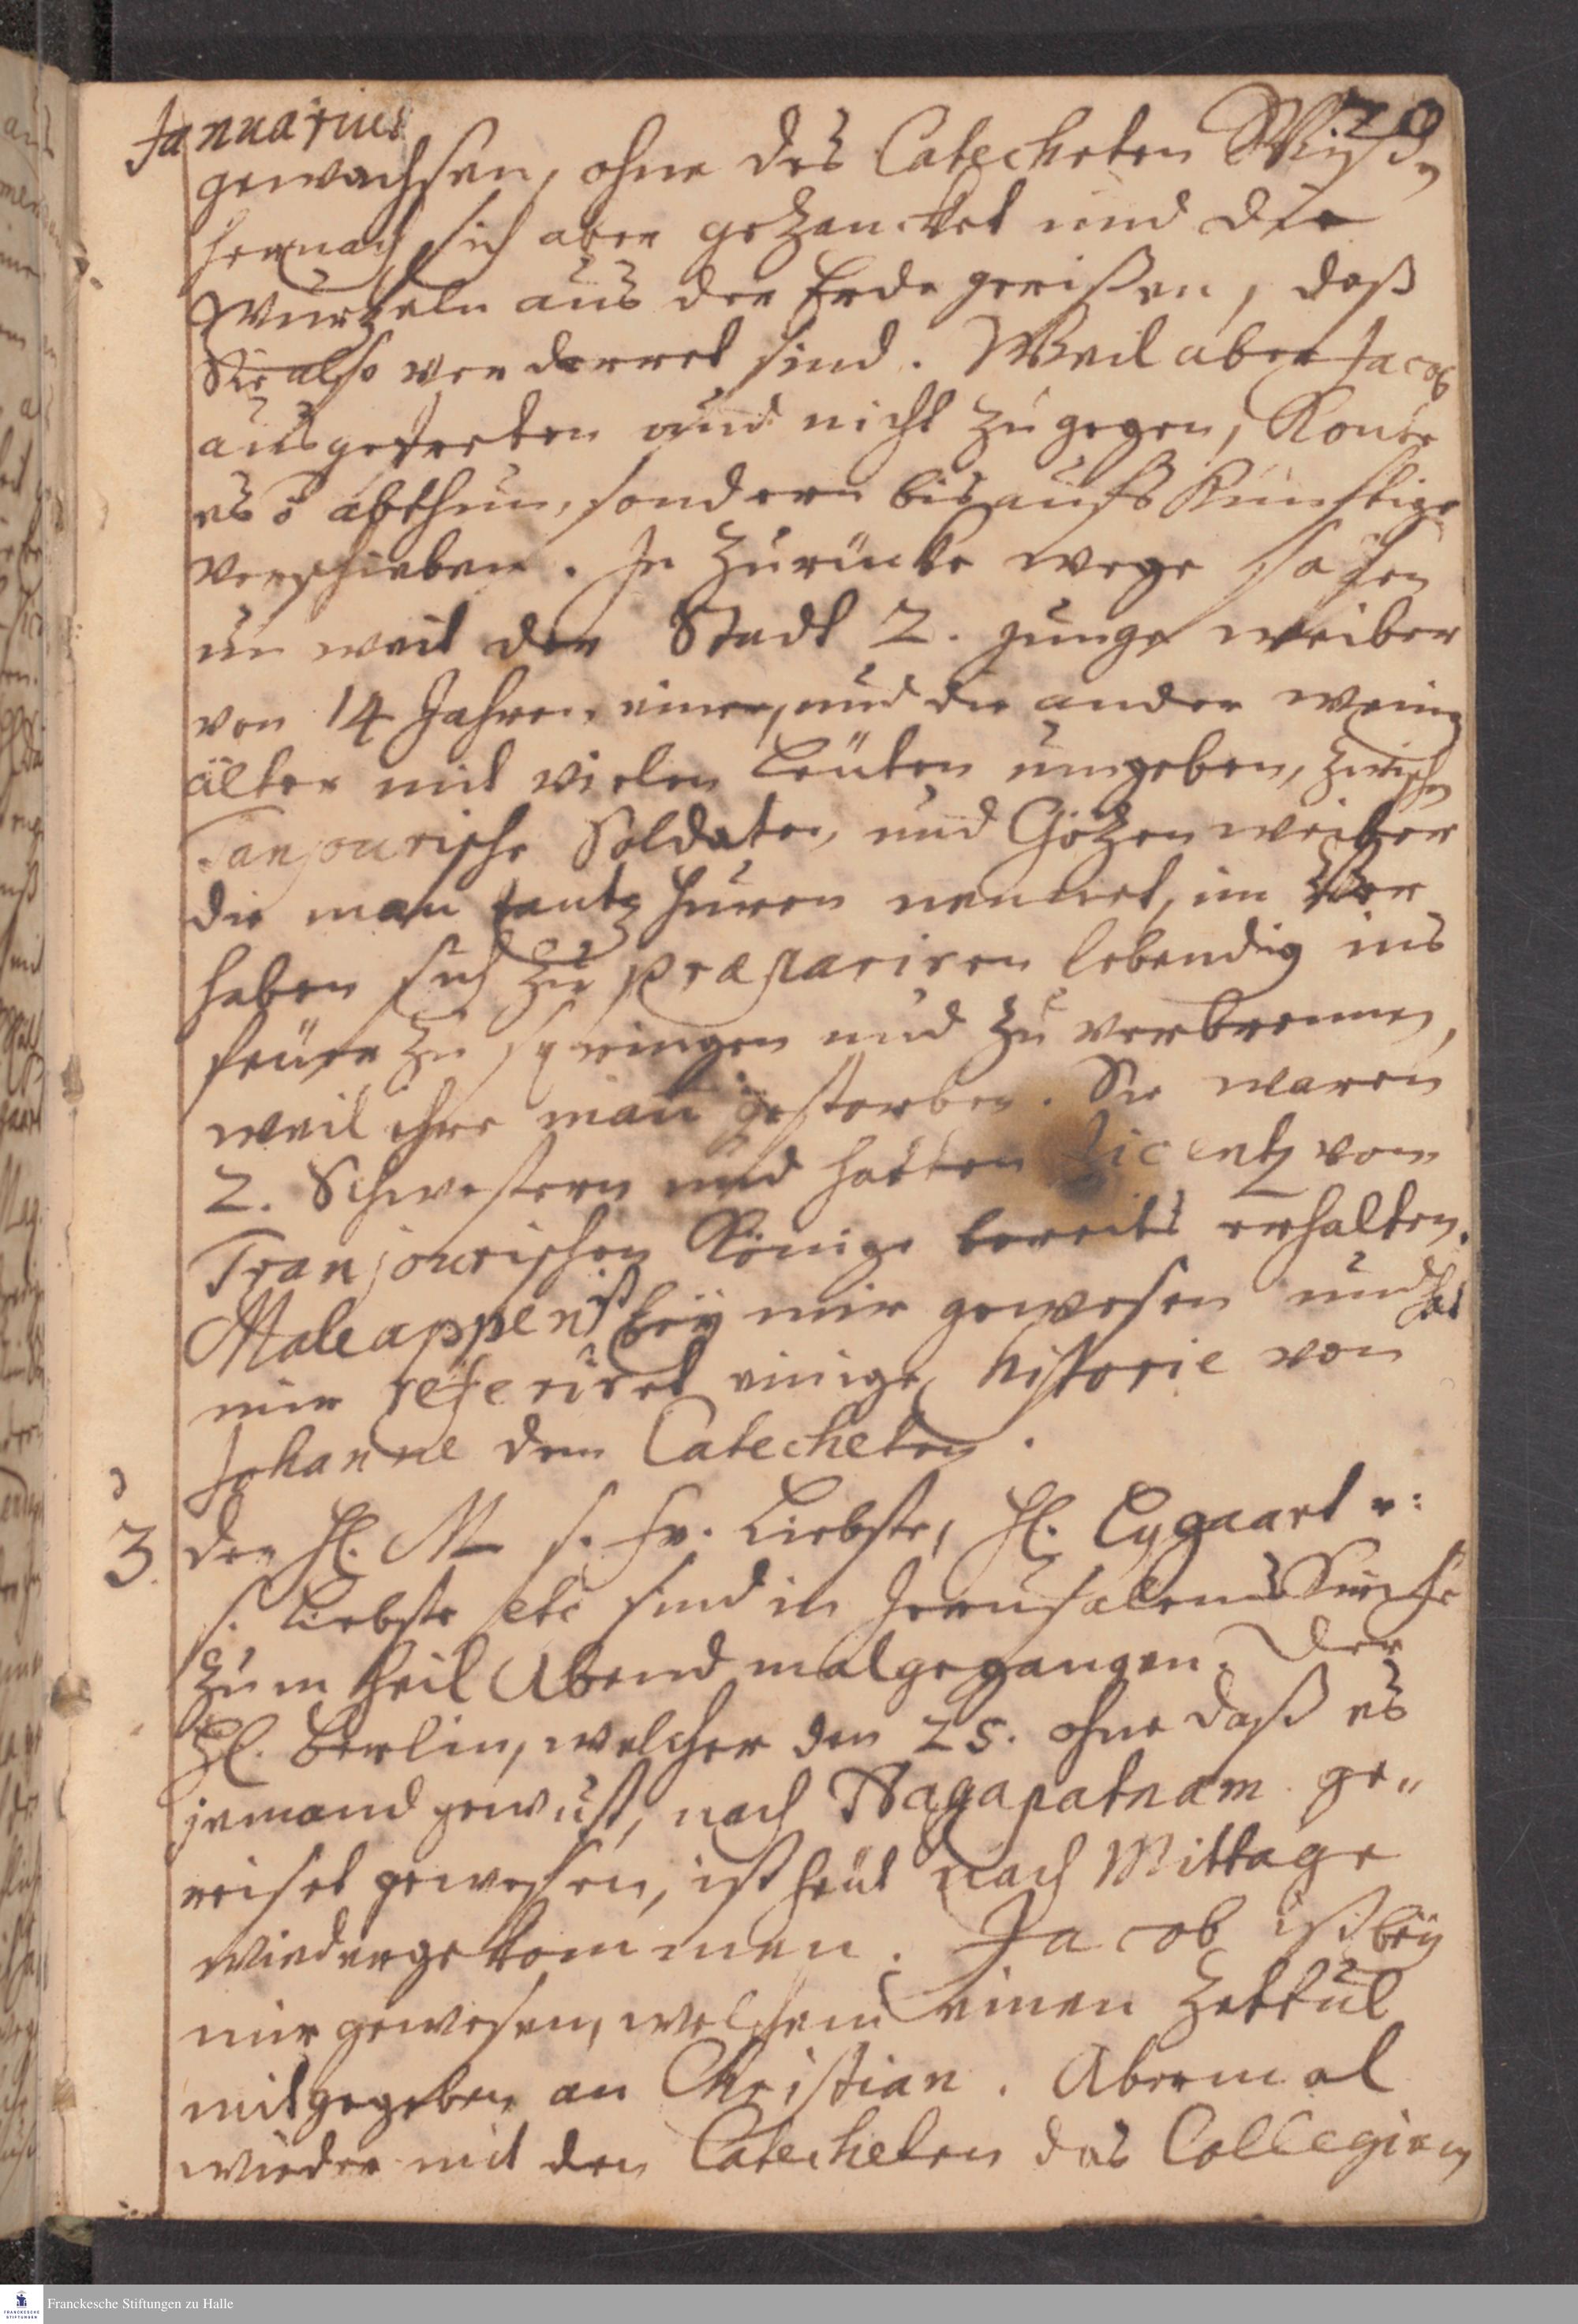 Januarius
gewachsen, ohne des Catecheten Wißen
hernach sich aber gezancket und die
Wurzeln aus der Erde gerißen, daß
Sie also verdorret sind. Weil aber Jacob
ausgetreten und nicht zugegen, Konte
es õ abthun, sondern bis aufs Künftige
verschieben. In Zurücke wege sahen
un weit der Stadt 2. junge weiber
von 14 Jahren, einer, und die ander wenig
älter mit vielen Leüten umgeben, zwischen
Tanjourische Soldaten, und Götzen weiber
die man tantz Huren nennet, im Vor
haben sich zu præpariren lebendig ins
feüer zu springen und zu verbrennen,
weil ihre man gestorben. Sie waren
2. Schwestern und hatten Licentz vom
Tranjourischen Könige bereits erhalten.
Maleappen ist beÿ mir gewesen und hat
mir referiret einige historie von
Johanne dem Catecheten.
3. der H. M s. Fr. Liebste, H. Cygaart u:
s. Liebste etc sind in Jerusalems Kirche
zum heil Abendmal gegangen. Der
H. Berlin, welcher den 25. ohne daß es
jemand gewust, nach Nagapatnam ge„
reiset gewesen, ist heüt nach Mittage
wiedergekommen. Jacob ist beÿ
mir gewesen, welchem einen Zettul
mitgegeben an Christian. Abermal
wieder mit den Catecheten das Collegium
Franckesche Stiftungen zu Halle